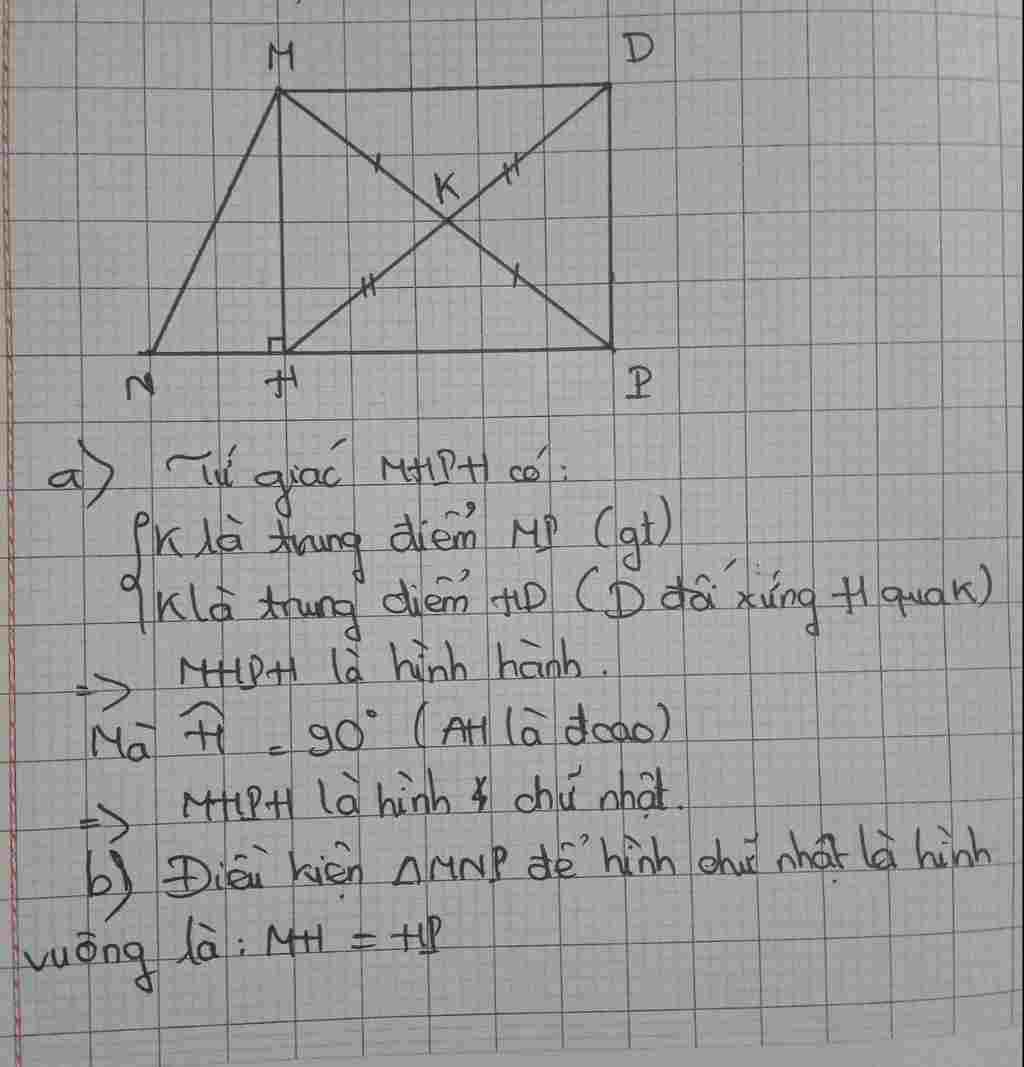 M
D
K
N
H
P
a) Tứ giác MHPH có:
K là trung điểm MP (gt)
K là trung điểm HD (D đối xứng H qua K)
=> MHPH là hình hành.
Mà Ĥ = 90° (AH là đcao)
=> MHPH là hình chữ nhật.
b) Điều kiện ΔMNP để hình chữ nhật là hình
vuông là: MH = HP